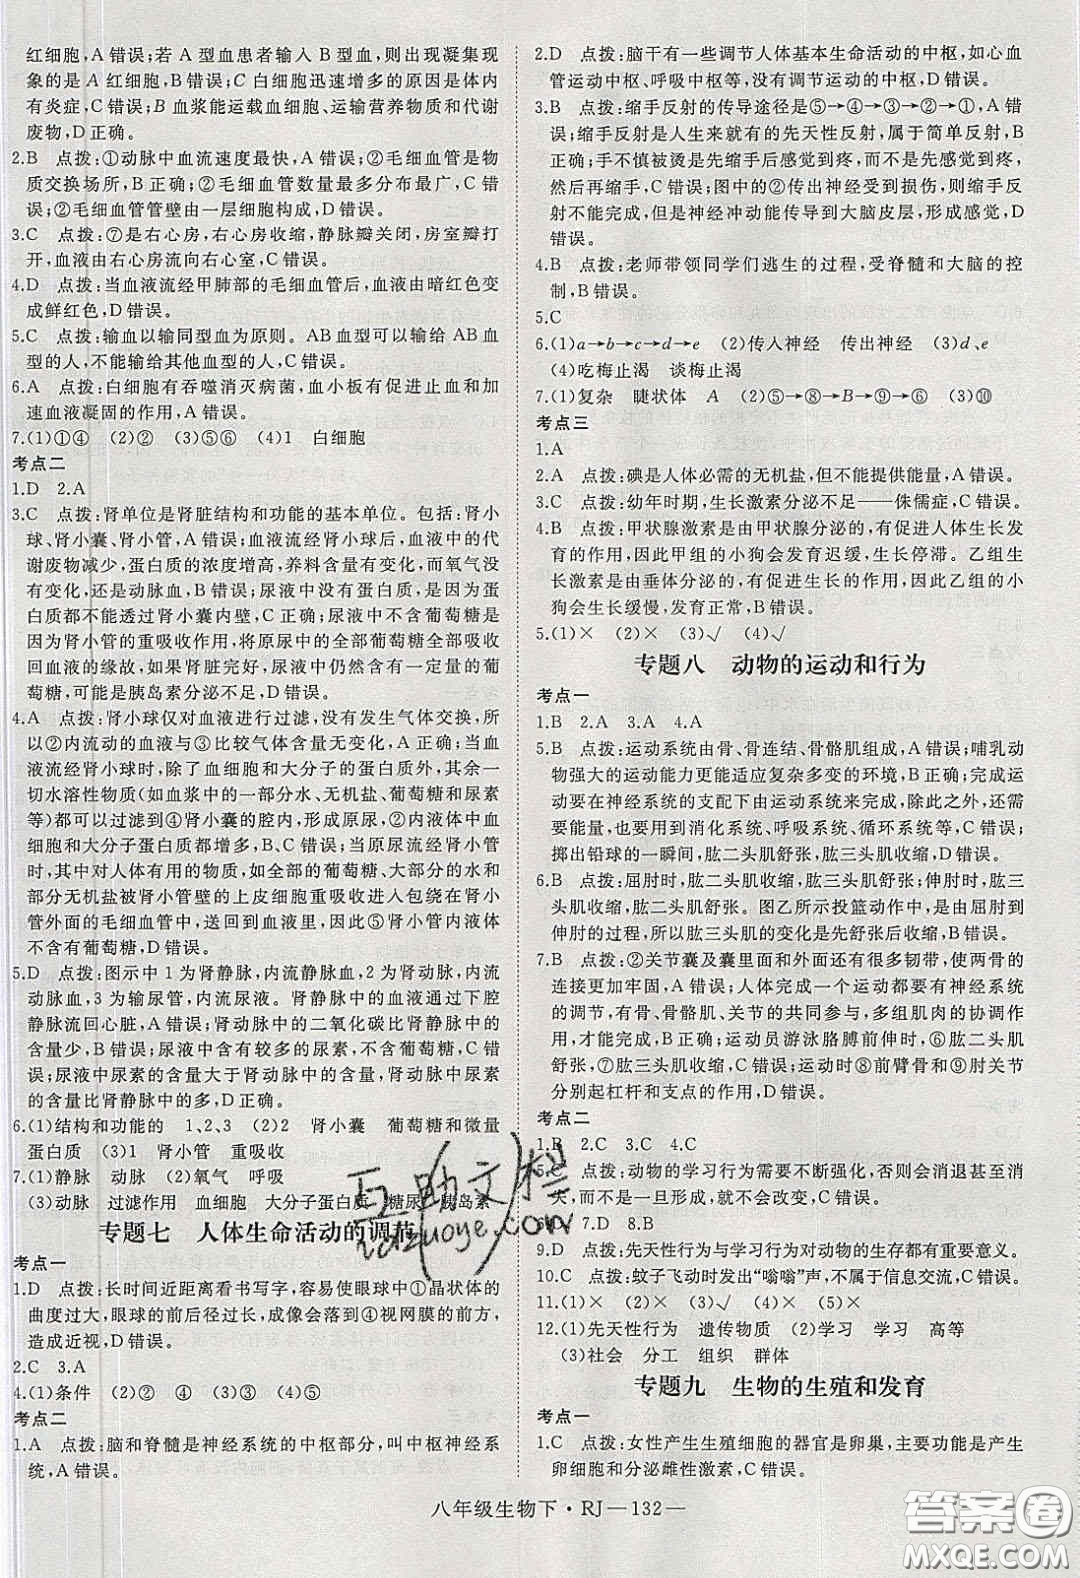 红细胞,A错误;若A型血患者输入B型血,则出现凝集现
象的是A红细胞,B错误;C白细胞迅速增多的原因是体内
有炎症,C错误;B血浆能运载血细胞、运输营养物质和代谢
废物,D正确。
2.B 点拨:①动脉中血流速度最快,A错误;②毛细血管是物
质交换场所,B正确;②毛细血管数量最多分布最广,C错
误;②毛细血管管壁由一层细胞构成,D错误。
3.C 点拨:⑦是右心房,右心房收缩,静脉瓣关闭,房室瓣打
开,血液由右心房流向右心室,C错误。
4.D 点拨:当血液流经甲肺部的毛细血管后,血液由暗红色变
成鲜红色,D错误。
5.C 点拨:输血以输同型血为原则。AB血型可以输给AB血
型的人,不能输给其他血型的人,C错误。
6.A 点拨:白细胞有吞噬消灭病菌,血小板有促进止血和加
速血液凝固的作用,A错误。
7.(1)①④ (2)② (3)⑤⑥ (4)1 白细胞
考点二
1.D 2.A
3.C 点拨:肾单位是肾脏结构和功能的基本单位。包括:肾小
球、肾小囊、肾小管,A错误;血液流经肾小球后,血液中的
代谢废物减少,蛋白质的浓度增高,养料含量有变化,而氧气
没有变化,还是动脉血,B错误;尿液中不含蛋白质是因为它
们不能透过肾小囊内壁,C正确;尿液中不含葡萄糖,是因为
肾小管的重吸收作用,将原尿中的全部葡萄糖全部吸收
回血液的缘故,如果肾脏完好,尿液中仍然含有一定量的葡
萄糖,可能是胰岛素分泌不足,D错误。
4.A 点拨:肾小球仅对血液进行过滤,没有发生气体交换,所
以②内流动的血液与③比较气体含量无变化,A正确;当血
液流经肾小球时,除了血细胞和大分子的蛋白质外,其余一
切水溶性物质(如血浆中的一部分水、无机盐、葡萄糖和尿素
等)都可以过滤到④肾小囊的腔内,形成原尿,②内流动的血
细胞和大分子蛋白质都增多,B、C错误;当原尿流经肾小管
时,其中对人体有用的物质(如全部的葡萄糖、大部分的水和
部分无机盐被肾小管壁的上皮细胞重吸收进入包绕在肾小
管外面的毛细血管中,送回到血液里,因此⑤肾小管内液体
不含有葡萄糖,D错误。
5.D 点拨:图示中1为肾静脉,内流静脉血,2为肾动脉,内流
动脉血,3为输尿管,内流尿液。肾静脉中的血液通过下腔
静脉流回心脏,A错误;肾动脉中的二氧化碳比肾静脉中的
含量少,B错误;尿液中含有较多的尿素,不含葡萄糖,C错
误;尿液中尿素的含量高于肾动脉中的含量,肾动脉中尿素
的含量比肾静脉中的多,D正确。
6.(1)结构和功能的 1、2、3 (2)2 肾小囊 葡萄糖和微量
蛋白质 (3)1 肾小管 重吸收
7.(1)静脉 动脉 (2)氧气 呼吸
(3)动脉 过滤作用 血细胞 大分子蛋白质 糖尿 胰岛素
专题七 人体生命活动的调节
考点一
1.D 点拨:长时间近距离看书写字,容易使眼球中①晶状体的
曲度过大,眼球的前后径过长,成像会落到④视网膜的前方,
造成近视,D错误。
2.C 3.A
4.(1)条件 (2)② ④ (3)③ ②
考点二
1.A 点拨:脑和脊髓是神经系统的中枢部分,叫中枢神经系
统,A错误。
2.D 点拨:脑干有一些调节人体基本生命活动的中枢,如心血
管运动中枢、呼吸中枢等,没有调节运动的中枢,D错误。
3.B 点拨:缩手反射的传导途径是⑤→④→③→②→①,A错
误;缩手反射是人生来就有的先天性反射,属于简单反射,B
正确;手不慎被烫是先缩手后感觉到疼,而不是先感觉到疼,
然后再缩手,C错误;图中的②传出神经受到损伤,则缩手反
射不能完成,但是神经冲动能传导到大脑皮层,形成感觉,D
错误。
4.B 点拨:老师带领同学们逃生的过程,受脊髓和大脑的控
制,B错误。
5.C
6.(1)a→b→c→d→e (2)传入神经 传出神经 (3)d、e
(4)吃梅止渴 谈梅止渴
7.(1)复杂 睫状体 A (2)⑤→⑧→B→⑨→⑥ (3)⑩
考点三
1.A
2.A 点拨:碘是人体必需的无机盐,但不能提供能量,A错误。
3.C 点拨:幼年时期,生长激素分泌不足——侏儒症,C错误。
4.B 点拨:甲状腺激素是由甲状腺分泌的,有促进人体生长发
育的作用,因此甲组的小狗会发育迟缓,生长停滞。乙组生
长激素是由垂体分泌的,有促进生长的作用,因此乙组的小
狗会生长缓慢,发育正常,B错误。
5.(1)× (2)× (3)√ (4)√
专题八 动物的运动和行为
考点一
1.B 2.A 3.A 4.A
5.B 点拨:运动系统由骨、骨连结、骨骼肌组成,A错误;哺乳动
物强大的运动能力更能适应复杂多变的环境,B正确;完成运
动要在神经系统的支配下由运动系统来完成,除此之外,还需
要能量,也要用到消化系统、呼吸系统、循环系统等,C错误;
掷出铅球的一瞬间,肱二头肌舒张,肱三头肌收缩,D错误。
6.B 点拨:屈肘时,肱二头肌收缩,肱三头肌舒张;伸肘时,肱三
头肌收缩,肱二头肌舒张。图乙所示投篮动作中,是由屈肘到
伸肘的过程,所以肱三头肌的变化是先舒张后收缩,B错误。
7.B 点拨:②关节囊及囊里面和外面还有很多韧带,使两骨的
连接更加牢固,A错误;人体完成一个运动都要有神经系统
的调节,有骨、骨骼肌、关节的共同参与,多组肌肉的协调作
用,才能完成,B正确;运动员游泳胳膊前伸时,⑥肱二头肌
舒张,⑦肱三头肌收缩,C错误;运动时⑧前臂骨和⑨肘关节
分别起杠杆和支点的作用,D错误。
考点二
1.B 2.C 3.C 4.C
5.C 点拨:动物的学习行为需要不断强化,否则会消退甚至消
灭,而不是一旦形成,就不会改变,C错误。
7.D 8.B
9.D 点拨:先天性行为与学习行为对动物的生存都有重要意义。
10.C 点拨:蚊子飞动时发出“嗡嗡”声,不属于信息交流,C错误。
11.(1)× (2)× (3)√ (4)× (5)×
12.(1)先天性行为 遗传物质 (2)学习 学习 高等
(3)社会 分工 组织 群体
专题九 生物的生殖和发育
考点一
1.C 点拨:女性产生生殖细胞的器官是卵巢,主要功能是产生
卵细胞和分泌雌性激素,C错误。
八年级生物下·RJ—132—
互助文档
答案圈
MXQE.COM